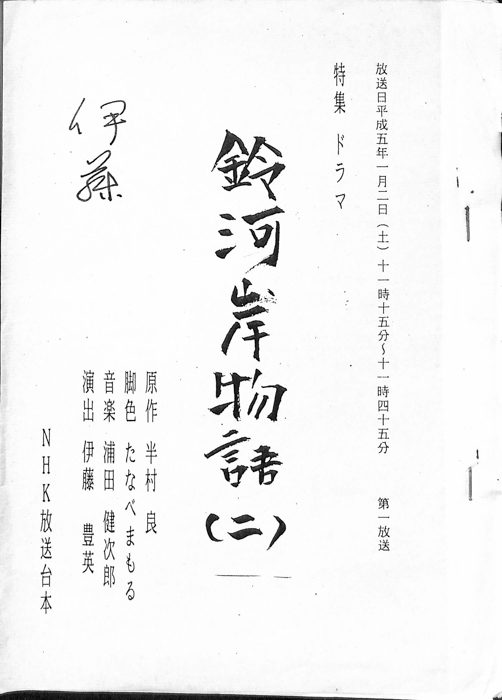 放送日平成五年一月二日（土）十一時十五分～十一時四十五分　第一放送
特集 ドラマ
鈴河岸物語（二）
伊藤
原作 半村 良
脚色 たなべまもる
音楽 浦田 健次郎
演出 伊藤 豊英
NHK放送台本